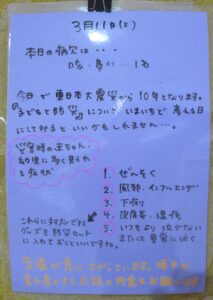 3月11日(土)
本日の病欠は・・・
咳・鼻水…1名
今日で東日本大震災から10年となります。
『子どもと防災』について いまいちど 考える日
にしてみると いいかもしれません…。
災害時の赤ちゃん・
幼児に多く見られる
症状
1. ぜんそく
2. 風邪、インフルエンザ
3. 下痢
4. 皮膚炎・湿疹
5. いつもより 泣かない
または 異常に泣く
これらに対応できる
グッズを防災セット
に入れておくといいですね。
気温が高い 上がっています。
お願いします